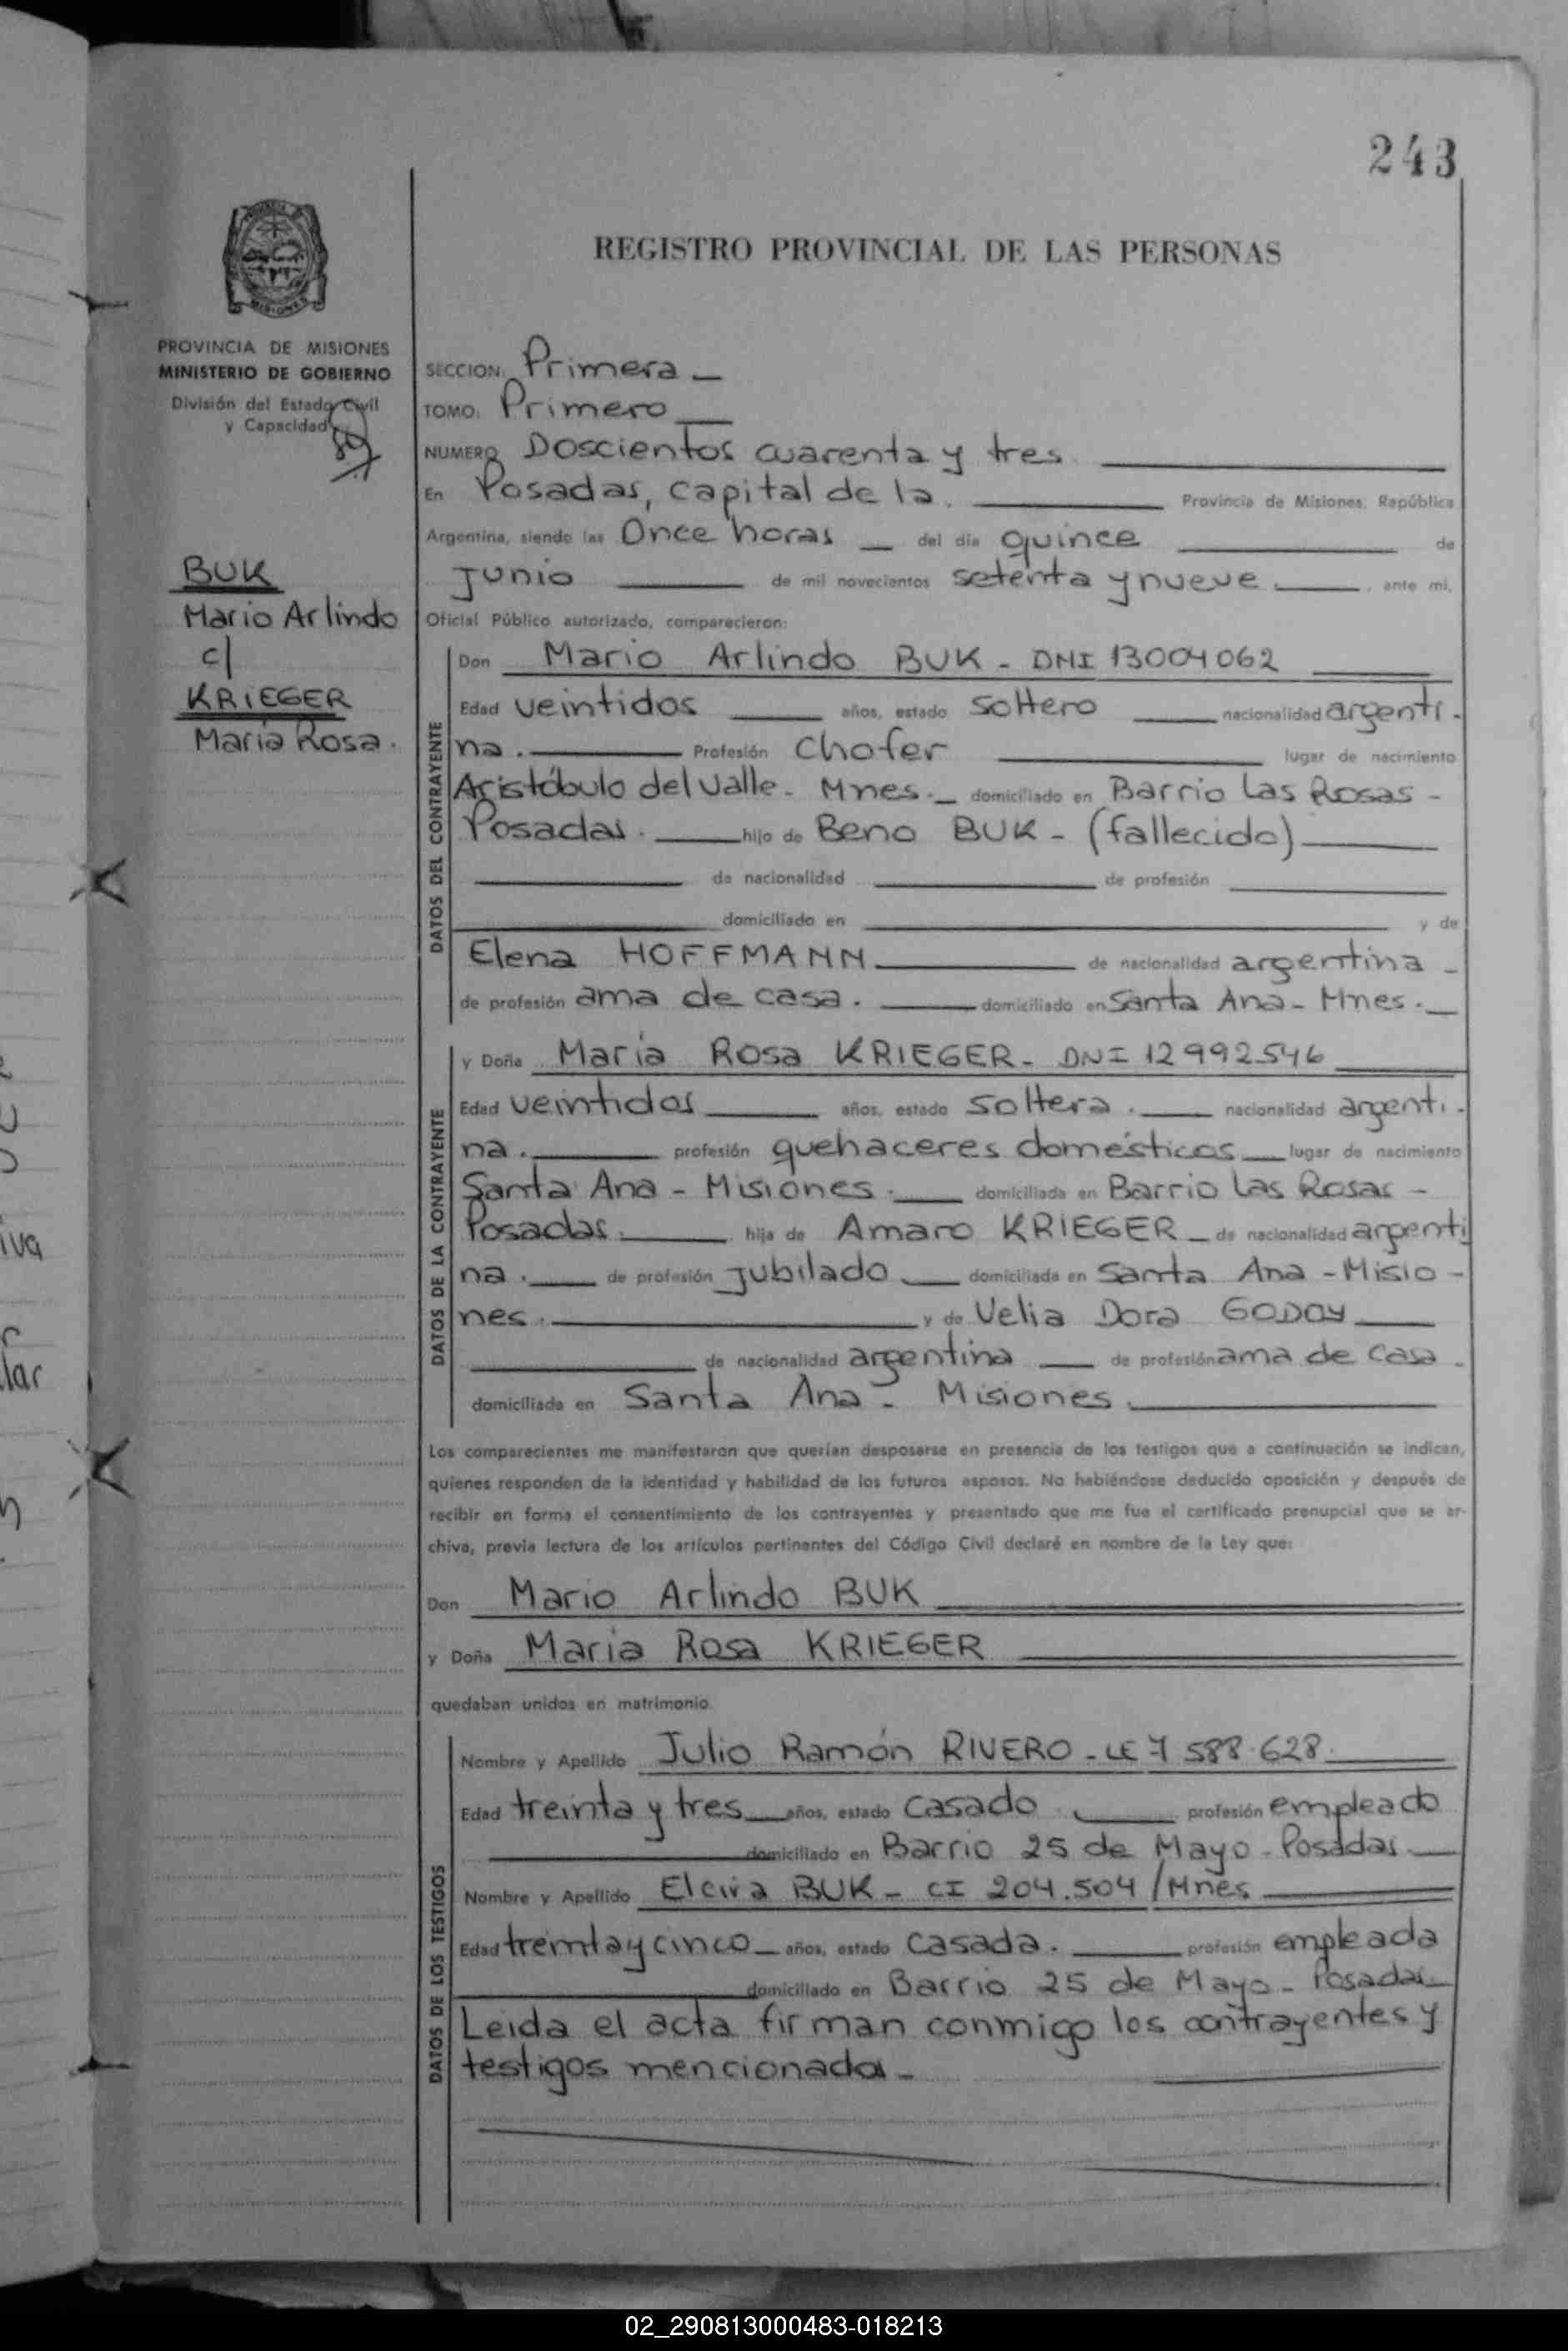 243
REGISTRO PROVINCIAL DE LAS PERSONAS
PROVINCIA DE MISIONES
MINISTERIO DE GOBIERNO
División del Estado Civil
y Capacidad
BUK
Mario Arlindo
c/
KRIEGER
María Rosa.
SECCION: Primera
TOMO: Primero
NUMERO Doscientos cuarenta y tres
En Posadas, capital de la. Provincia de Misiones, República
Argentina, siendo las Once horas del día quince de
Junio de mil novecientos setenta y nueve, ante mi,
Oficial Público autorizado, comparecieron:
DATOS DEL CONTRAYENTE
Don Mario Arlindo BUK - DNI 13004062
Edad veintidos años, estado soltero nacionalidad argenti-
na. Profesión chofer lugar de nacimiento
Aristóbulo del Valle - Mnes. domiciliado en Barrio Las Rosas -
Posadas. hijo de Beno BUK - (fallecido)
de nacionalidad de profesión
domiciliado en y de
Elena HOFFMANN de nacionalidad argentina -
de profesión ama de casa. domiciliado en Santa Ana - Mnes.
DATOS DE LA CONTRAYENTE
y Doña María Rosa KRIEGER - DNI 12992546
Edad veintidos años, estado soltera. nacionalidad argenti-
na. profesión quehaceres domésticos lugar de nacimiento
Santa Ana - Misiones. domiciliada en Barrio Las Rosas -
Posadas. hija de Amaro KRIEGER de nacionalidad argenti
na. de profesión jubilado domiciliada en Santa Ana - Misio -
nes. y de Velia Dora GODOY
de nacionalidad argentina de profesión ama de casa.
domiciliada en Santa Ana - Misiones.
Los comparecientes me manifestaron que querían desposarse en presencia de los testigos que a continuación se indican,
quienes responden de la identidad y habilidad de los futuros esposos. No habiéndose deducido oposición y después de
recibir en forma el consentimiento de los contrayentes y presentado que me fue el certificado prenupcial que se ar-
chiva, previa lectura de los artículos pertinentes del Código Civil declaré en nombre de la Ley que:
Don Mario Arlindo BUK
y Doña María Rosa KRIEGER
quedaban unidos en matrimonio
DATOS DE LOS TESTIGOS
Nombre y Apellido Julio Ramón RIVERO - LE 7 588.628.
Edad treinta y tres años, estado casado. profesión empleado
domiciliado en Barrio 25 de Mayo - Posadas
Nombre y Apellido BUK - CI 204.504/Mnes
Edad treinta y cinco años, estado casada. profesión empleada
domiciliado en Barrio 25 de Mayo - Posadas
Leida el acta firman conmigo los contrayentes y
testigos mencionados -
02_290813000483-018213